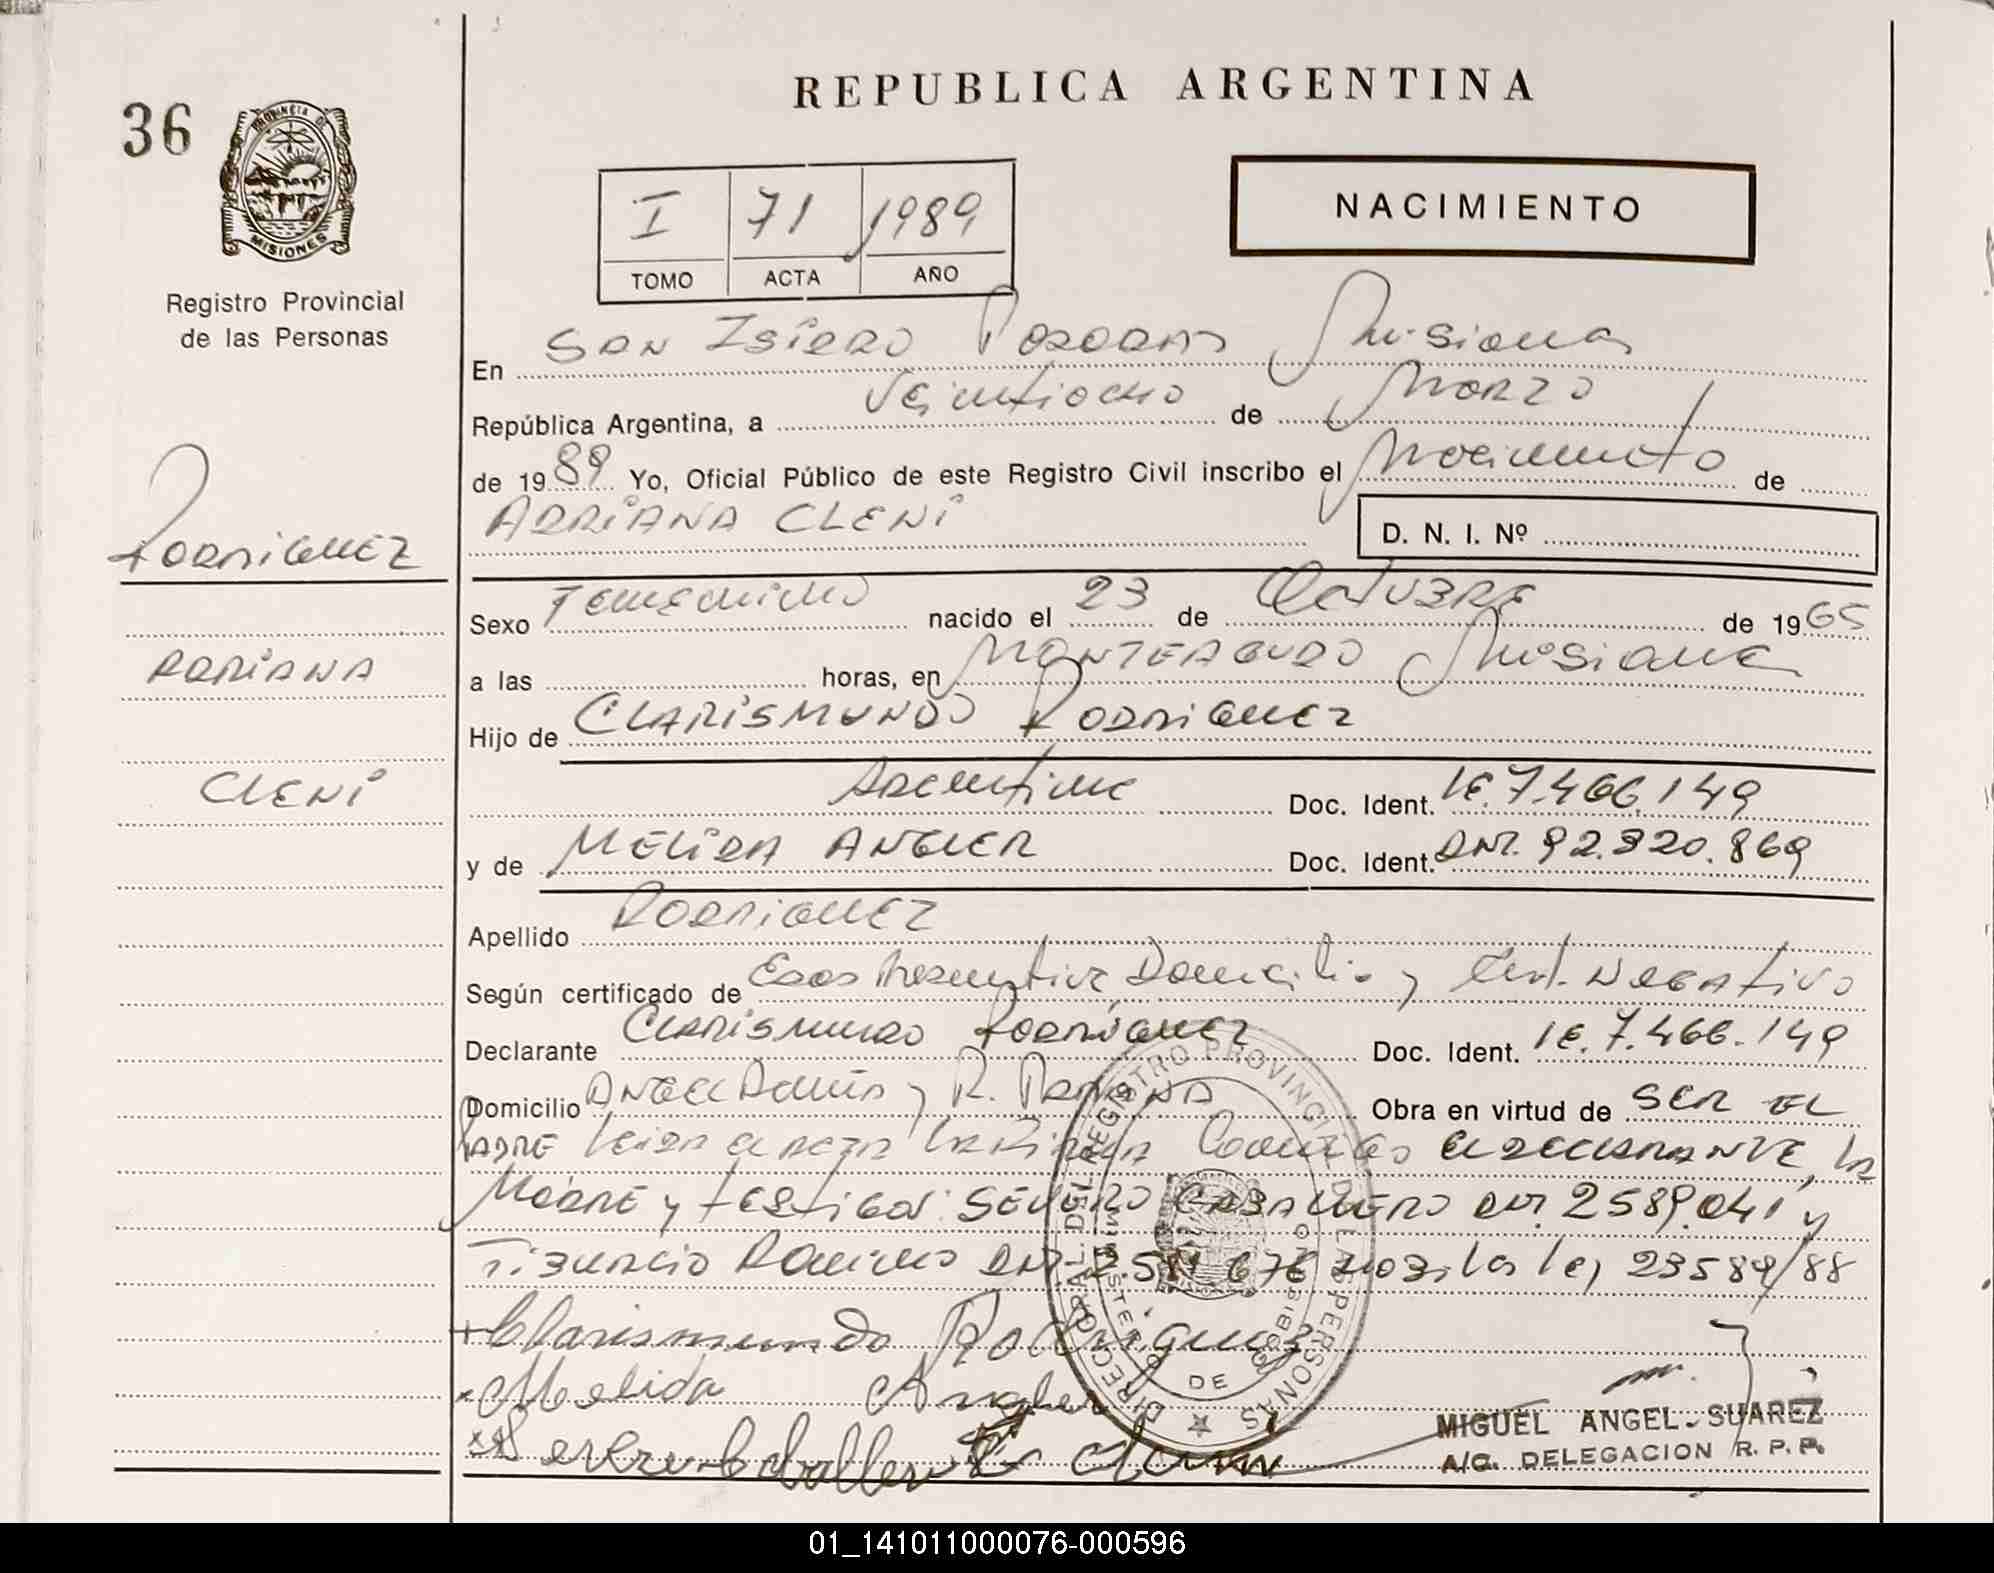 36
PROVINCIA DE
MISIONES
Registro Provincial
de las Personas
REPUBLICA ARGENTINA
I 71 1989
TOMO ACTA AÑO
NACIMIENTO
En San Isidro Posadas Misiones
República Argentina, a Veintiocho de Marzo
de 1989 Yo, Oficial Público de este Registro Civil inscribo el Nacimiento de
ADRIANA CLENI
D. N. I. Nº
Rodriguez
ADRIANA
CLENI
Sexo Femenino nacido el 23 de Octubre de 1965
a las horas, en MONTEAGUDO Misiones
Hijo de CLARISMUNDO Rodriguez
Argentino Doc. Ident. LE. 7.466.149
y de MELIDA ANGLER Doc. Ident. DNI. 92.320.869
Apellido RODRIGUEZ
Según certificado de Domicilio y Cert. Negativo
Declarante Clarismundo Rodriguez Doc. Ident. LE. 7.466.149
Domicilio y R. Obra en virtud de SER EL
PADRE Leida el acta la firman Conmigo el declarante, la
Madre y testigos: SEVERO CABALLERO DNI. 2589.041 y
Tiburcio Ramirez DNI. 2.5 676 por la ley 23589/88
+ Clarismundo Rodriguez
x Melida Angler
x Severo Caballero
DIRECCION GRAL. DEL REGISTRO PROVINCIAL DE LAS PERSONAS
MINISTERIO DE GOBIERNO
MIGUEL ANGEL SUAREZ
A/C. DELEGACION R. P. P.
01_141011000076-000596